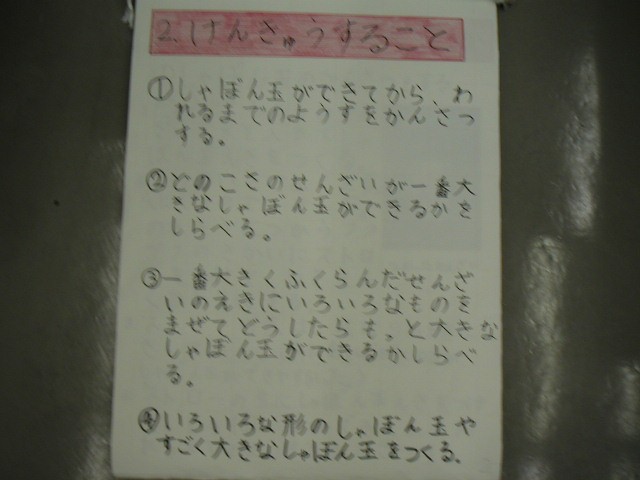 2.けんきゅうすること
①しゃぼん玉ができてから、わ
れるまでのようすをかんさつ
する。
②どのこさのせんざいが一番大
きなしゃぼん玉ができるかを
しらべる。
③一番大きくふくらんだせんざ
いのえきにいろいろなものを
まぜてどうしたらも。と大きな
しゃぼん玉ができるかしらべ
る。
④いろいろな形のしゃぼん玉や
すごく大きなしゃぼん玉をつくる。